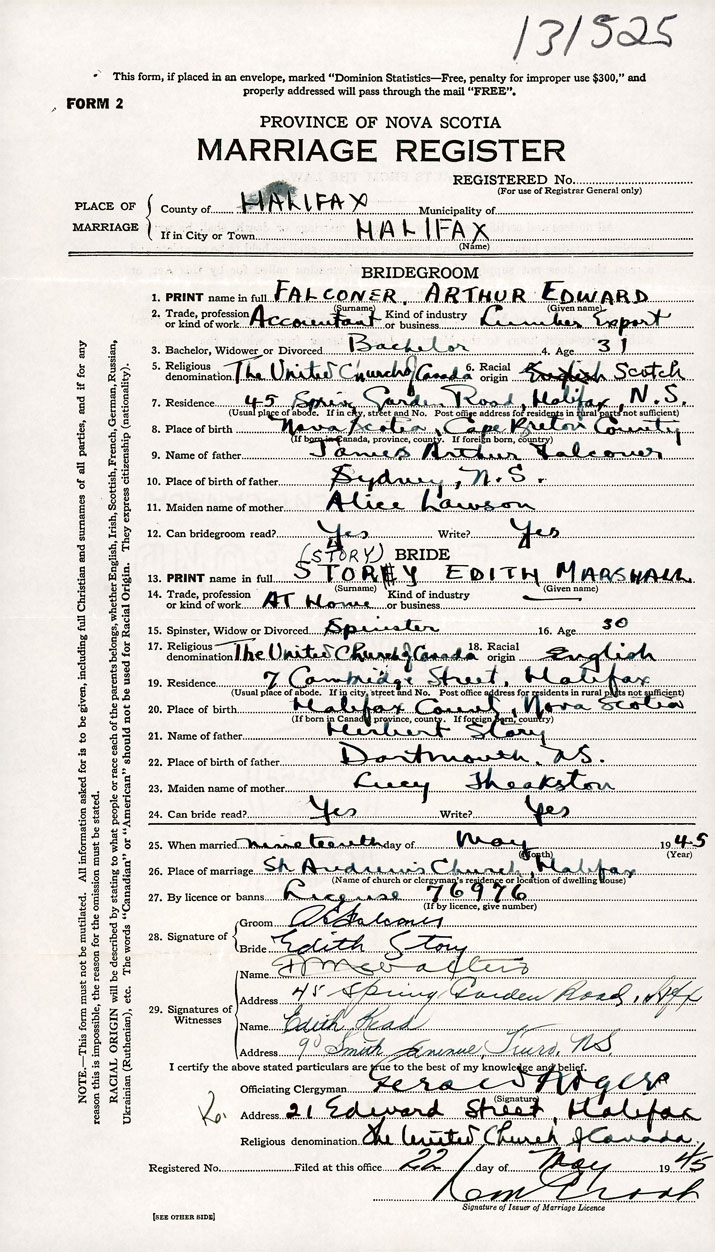 131525
This form, if placed in an envelope, marked "Dominion Statistics—Free, penalty for improper use $300," and
properly addressed will pass through the mail "FREE".
FORM 2
PROVINCE OF NOVA SCOTIA
MARRIAGE REGISTER
REGISTERED No.
(For use of Registrar General only)
PLACE OF MARRIAGE
County of HALIFAX Municipality of
If in City or Town HALIFAX
(Name)
BRIDEGROOM
1. PRINT name in full FALCONER, ARTHUR EDWARD
(Surname) (Given name)
2. Trade, profession or kind of work Accountant Kind of industry or business Lumber Export
3. Bachelor, Widower or Divorced Bachelor 4. Age 31
5. Religious denomination The United Church of Canada 6. Racial origin English Scotch
7. Residence 45 Spring Garden Road, Halifax, N.S.
(Usual place of abode. If in city, street and No. Post office address for residents in rural parts not sufficient)
8. Place of birth Nova Scotia, Cape Breton County
(If born in Canada, province, county. If foreign born, country)
9. Name of father James Arthur Falconer
10. Place of birth of father Sydney, N.S.
11. Maiden name of mother Alice Lawson
12. Can bridegroom read? Yes Write? Yes
(STORY) BRIDE
13. PRINT name in full STOREY EDITH MARSHALL
(Surname) (Given name)
14. Trade, profession or kind of work AT Home Kind of industry or business
15. Spinster, Widow or Divorced Spinster 16. Age 30
17. Religious denomination The United Church of Canada 18. Racial origin English
19. Residence 7 Cambridge Street, Halifax
(Usual place of abode. If in city, street and No. Post office address for residents in rural parts not sufficient)
20. Place of birth Halifax County, Nova Scotia
(If born in Canada, province, county. If foreign born, country)
21. Name of father Herbert Story
22. Place of birth of father Dartmouth, N.S.
23. Maiden name of mother Lucy Theakston
24. Can bride read? Yes Write? Yes
25. When married nineteenth day of May 1945
(Month) (Year)
26. Place of marriage St. Andrew's Church, Halifax
(Name of church or clergyman's residence or location of dwelling house)
27. By licence or banns License 76976
(If by licence, give number)
28. Signature of
Groom AE Falconer
Bride Edith Story
29. Signatures of Witnesses
Name
Address 45 Spring Garden Road, Hfx
Name Edith Read
Address 90 Smith Avenue, Truro, N.S.
I certify the above stated particulars are true to the best of my knowledge and belief.
Officiating Clergyman Gerald Rogers
(Signature)
Address 21 Edward Street, Halifax
Religious denomination The United Church of Canada
Registered No. Filed at this office 22 day of May 1945
Signature of Issuer of Marriage Licence
[SEE OTHER SIDE]
NOTE.—This form must not be mutilated. All information asked for is to be given, including full Christian and surnames of all parties, and if for any
reason this is impossible, the reason for the omission must be stated.
RACIAL ORIGIN will be described by stating to what people or race each of the parents belongs, whether English, Irish, Scottish, French, German, Russian,
Ukrainian (Ruthenian), etc. The words "Canadian" or "American" should not be used for Racial Origin. They express citizenship (nationality).